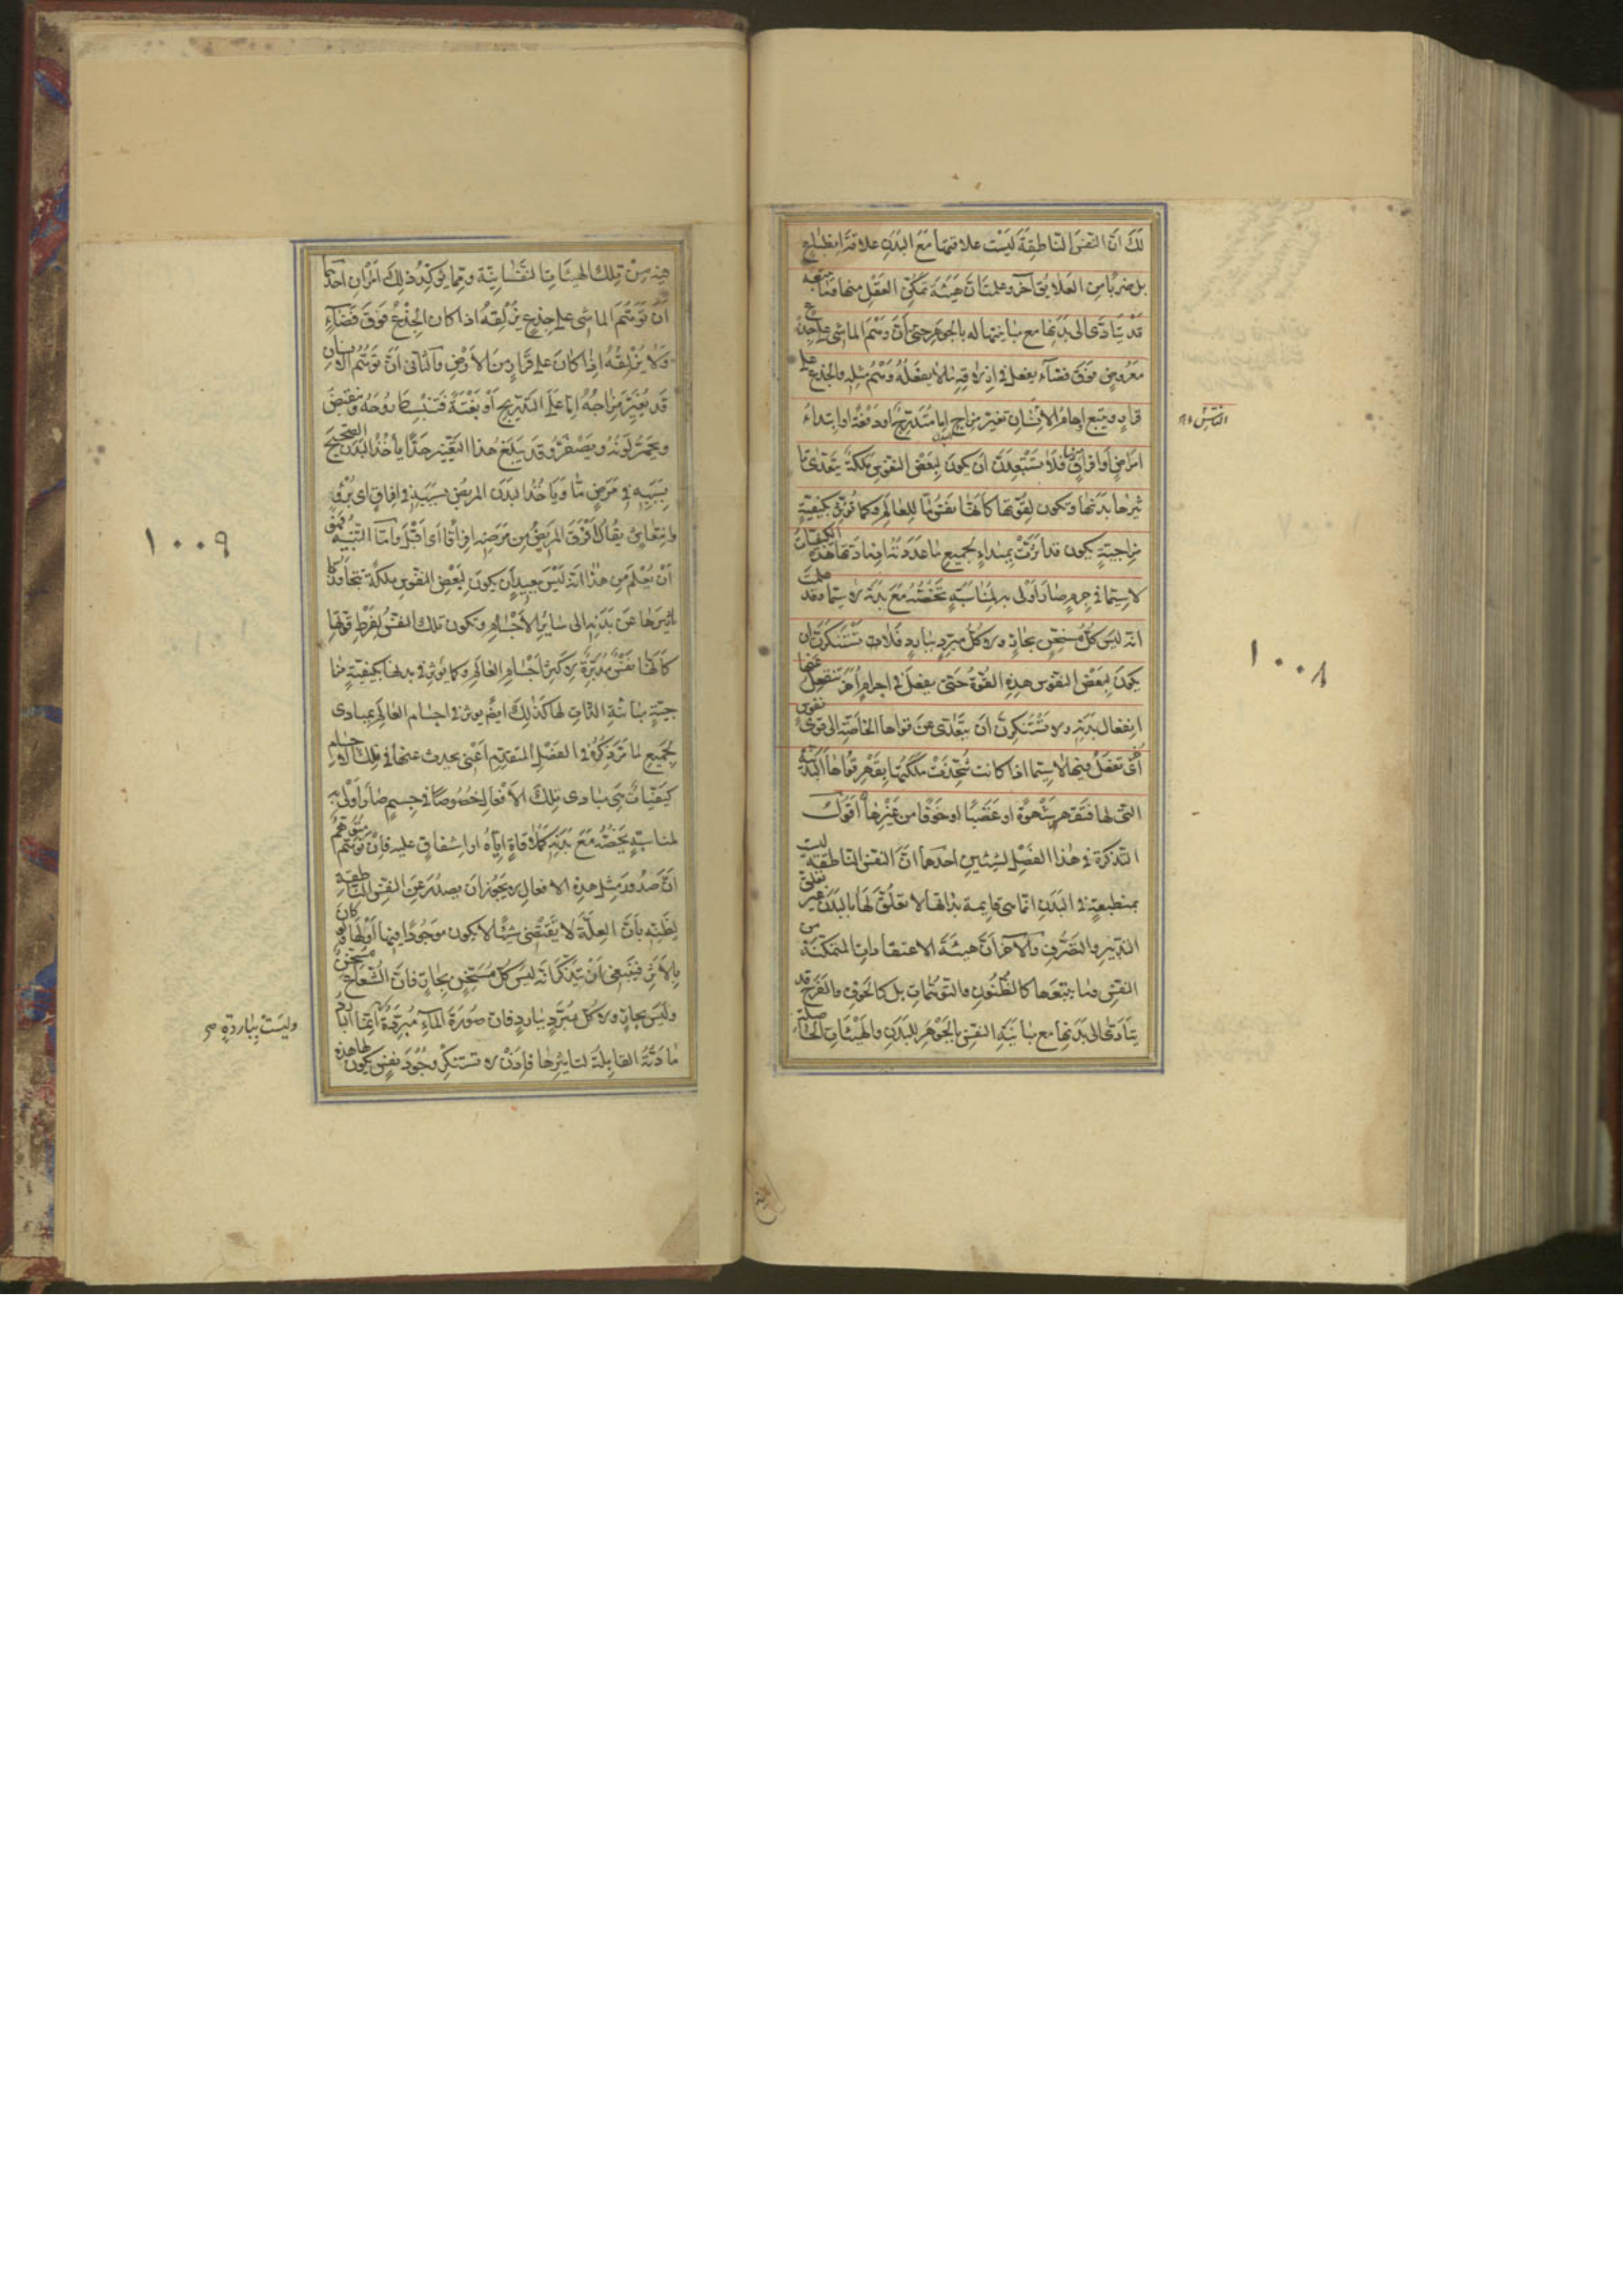 لك ان النفس الناطقة ليست علاقتها مع البدن علاقة انطباع
بل ضربا من العلايق آخر وعلمت ان هيئة تمكن العقل منها وما يتبعه
قد يتادى الى بدنها مع مباينتها له بالجوهر حتى ان وهم الماشى على جذع
معروض فوق فضاء يفعل فى ازلاقه ما لا يفعله وهم مثله والجذع على
قرار ويتبع اوهام الانسان تغير مزاج اما متدرجا او دفعة او ابتداء
امراض او افراق منها فلا تستبعدن ان يكون لبعض النفوس ملكة يتعدى تا
ثيرها بدنها وتكون لقوتها كانها نفس ما للعالم وكما تؤثر بكيفية
مزاجية يكون قد اثرت بمبداء لجميع ما عددته اذ مبادئها هذه الكيفيات
لا سيما فى جرم صار اولى به لمناسبة تخصه مع بدنه لا سيما وقد علمت
انه ليس كل مسخن بحار ولا كل مبرد ببارد فلا تستنكرن ان
يكون لبعض النفوس هذه القوة حتى يفعل فى اجرام اخر تنفعل عنها
انفعال بدنه ولا تستنكرن ان يتعدى عن قواها الخاصة الى قوى نفوس
اخرى تفعل فيها لا سيما اذا كانت شحذت ملكتها بقهر قواها البدنية
التى لها فتقهر شهوة او غضبا او خوفا من غيرها اقول
التذكرة فى هذا الفصل لشيئين احدهما ان النفس الناطقة ليست
بمنطبعة فى البدن انما هى قايمة بذاتها لا تعلق لها بالبدن غير تعلق
التدبير والتصرف والآخر ان هيئة الاعتقادات المتمكنة من
النفس وما يتبعها كالظنون والتوهمات بل كالخوف والفرح قد
يتادى الى بدنها مع مباينة النفس بالجوهر للبدن والهيئات الحاصلة
١٠٠٨
فيه من تلك الهيئات النفسانية ومما يوكد ذلك امران احدهما
ان توهم الماشى على جذع يزلقه اذا كان الجذع فوق فضاء
ولا يزلقه اذا كان على قرار من الارض والثانى ان توهم الانسان
قد يغير مزاجه اما على التدريج او بغتة فتنبسط روحه وتنقبض
ويحمر لونه ويصفر وقد يبلغ هذا التغير حدا يأخذ البدن الصحيح
بسببه فى مرض ما ويأخذ البدن المريض بسببه فى افراق اى برؤ
وانتعاش يقال افرق المريض من مرضه افراقا اى اقبل واما التنبيه فهو
ان يعلم من هذا انه ليس ببعيد ان يكون لبعض النفوس ملكة يتجاوز
تاثيرها عن بدنه الى ساير الاجسام وتكون تلك النفس لفرط قوتها
كانها نفس مدبرة لاكثر اجسام العالم وكما يؤثر فى بدنها بكيفية مزا
جية مباينة الذات لها كذلك ايضا يؤثر فى اجسام العالم بمبادى
لجميع ما مر ذكره فى الفصل المتقدم اعنى يحدث عنها فى تلك الاجسام
كيفيات هى مبادى تلك الافعال خصوصا فى جسم صار اولى به
لمناسبة يخصه مع بدنه كملاقاة اياه او اشفاق عليه فان توهم متوهم
ان صدور مثل هذه الافعال لا يجوز ان يصدر عن النفس الناطقة
لظنه بان العلة لا يقتضى شيئا لا يكون موجودا فيها اولها ولو كان
بالاثر فينبغى ان يتذكر انه ليس كل مسخن بحار فان الشعاع مسخن
وليس بحار ولا كل مبرد ببارد فان صورة الماء مبردة انما البارد
مادته القابلة لتاثيرها فاذن لا تستنكر وجود نفس يكون لها هذه
وليست بباردة صح
١٠٠٩